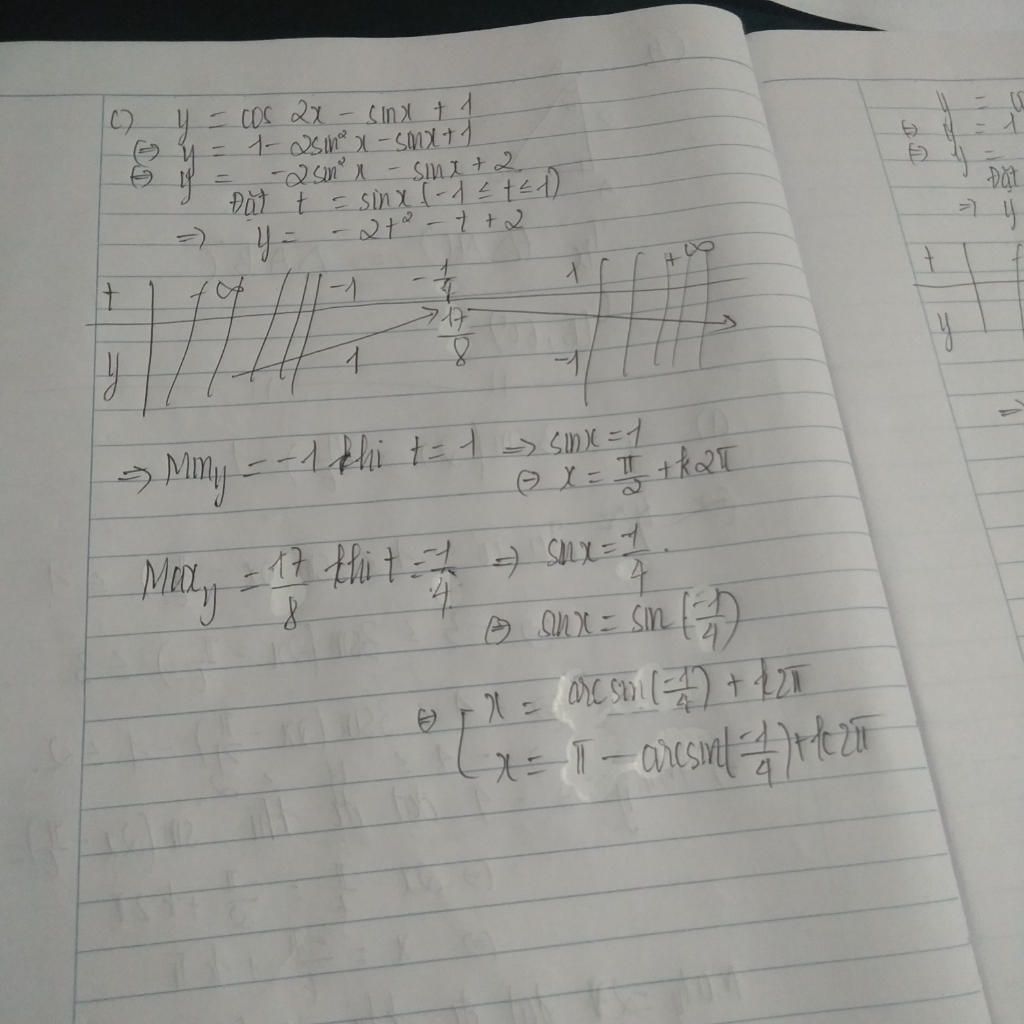 c) y = cos 2x - sinx + 1
⇔ y = 1 - 2sin² x - sinx + 1
⇔ y = -2sin² x - sinx + 2
Đặt t = sinx (-1 ≤ t ≤ 1)
⇒ y = -2t² - t + 2
t -∞ -1 -1/4 1 +∞
y 1 17/8 -1
⇒ Min y = -1 khi t = 1 ⇒ sinx = 1
⇔ x = π/2 + k2π
Max y = 17/8 khi t = -1/4 ⇒ sinx = -1/4
⇔ sinx = sin (-1/4)
⇔ [ x = arcsin(-1/4) + k2π
x = π - arcsin(-1/4) + k2π
y = co
⇔ y = 1
⇔ y =
Đặt
⇒ y
t
y
⇒